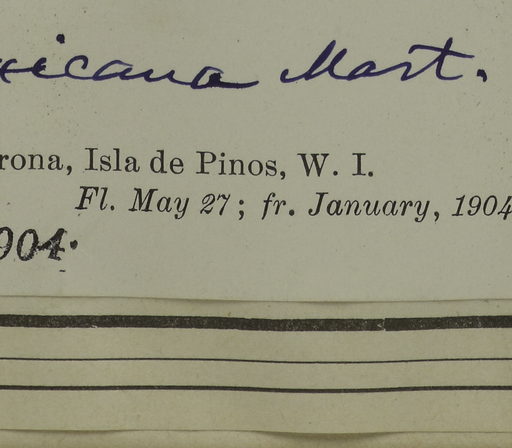 xicana Mart.
rona, Isla de Pinos, W. I.
Fl. May 27; fr. January, 1904
904.